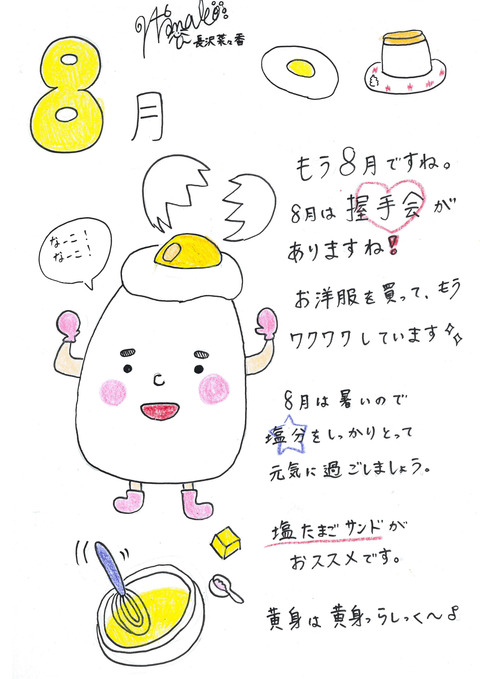 Nanako
長沢菜々香
8
月
もう8月ですね。
8月は握手会が
ありますね!
なーこ!
なーこ!
お洋服を買って、もう
ワクワクしています
8月は暑いので
塩分をしっかりとって
元気に過ごしましょう。
塩たまごサンドが
おススメです。
黄身は黄身っらしっく〜♪